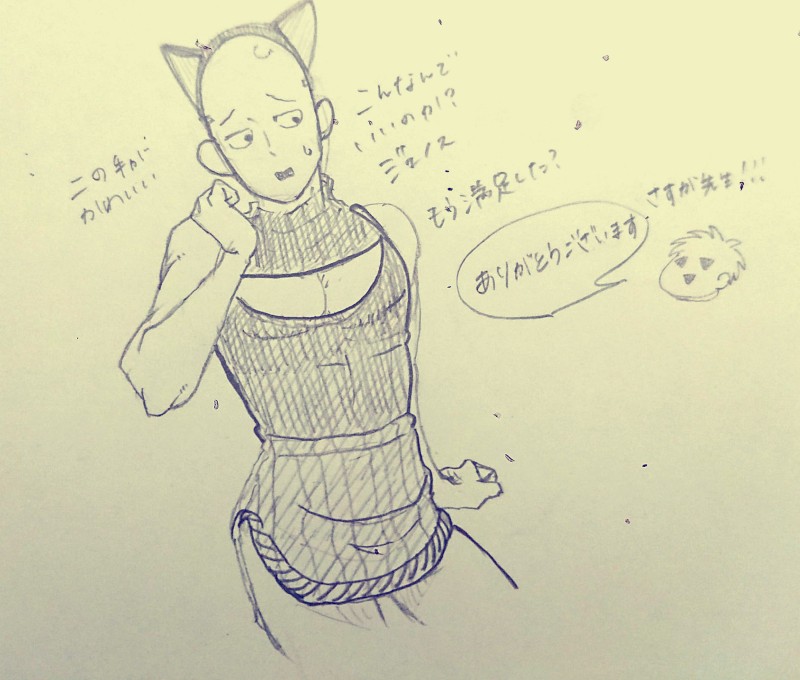 こんなんで
いいのか!?
ジェノス
もう満足した?
この手が
かわいい
さすが先生!!!
ありがとうございます